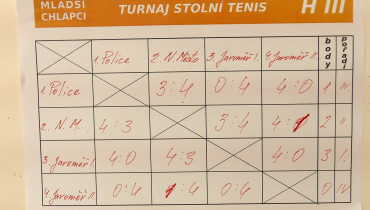 MLADŠÍ CHLAPCI TURNAJ STOLNÍ TENIS H III
1. Police 2. N. Město 3. Jaroměř I. 4. Jaroměř II. body pořadí
1. Police 3:4 0:4 4:0 1 III.
2. N. M. 4:3 3:4 4: 2 II.
3. Jaroměř I. 4:0 4:3 4:0 3 I.
4. Jaroměř II 0:4 :4 0:4 0 IV